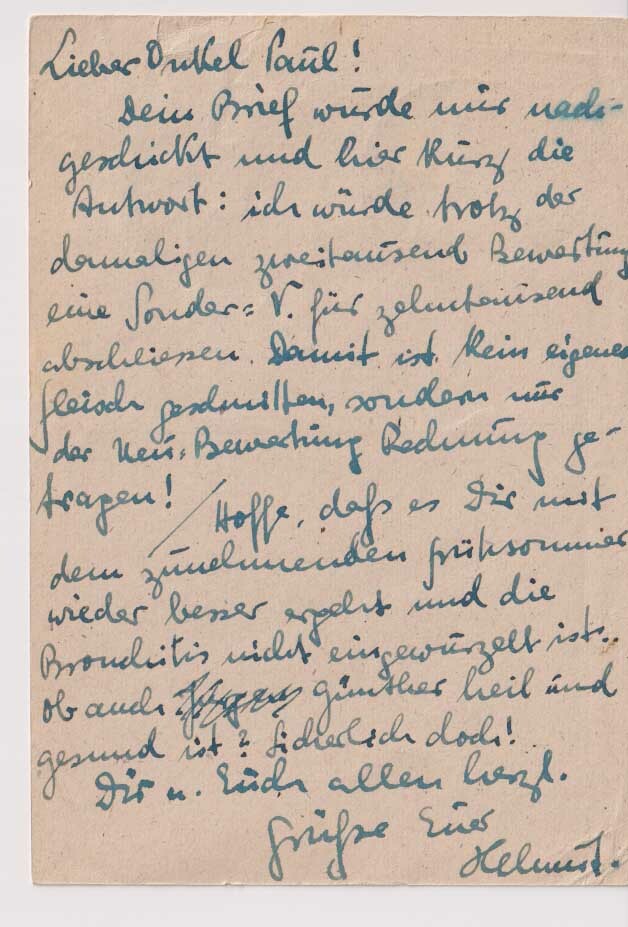 Lieber Onkel Paul!
Dein Brief wurde mir nach-
geschickt und hier kurz die
Antwort: ich würde trotz der
damaligen zweitausend Bewertung
eine Sonder=V. für zehntausend
abschliessen. Damit ist kein eigenes
Fleisch geschnitten, sondern nur
der Neu=Bewertung Rechnung ge-
tragen! / Hoffe, daß es Dir mit
dem zunehmenden Frühsommer
wieder besser ergeht und die
Bronchitis nicht eingewurzelt ist..
Ob auch Günther heil und
gesund ist? Sicherlich doch!
Dir u. Euch allen herzl.
Grüße Euer
Helmut.